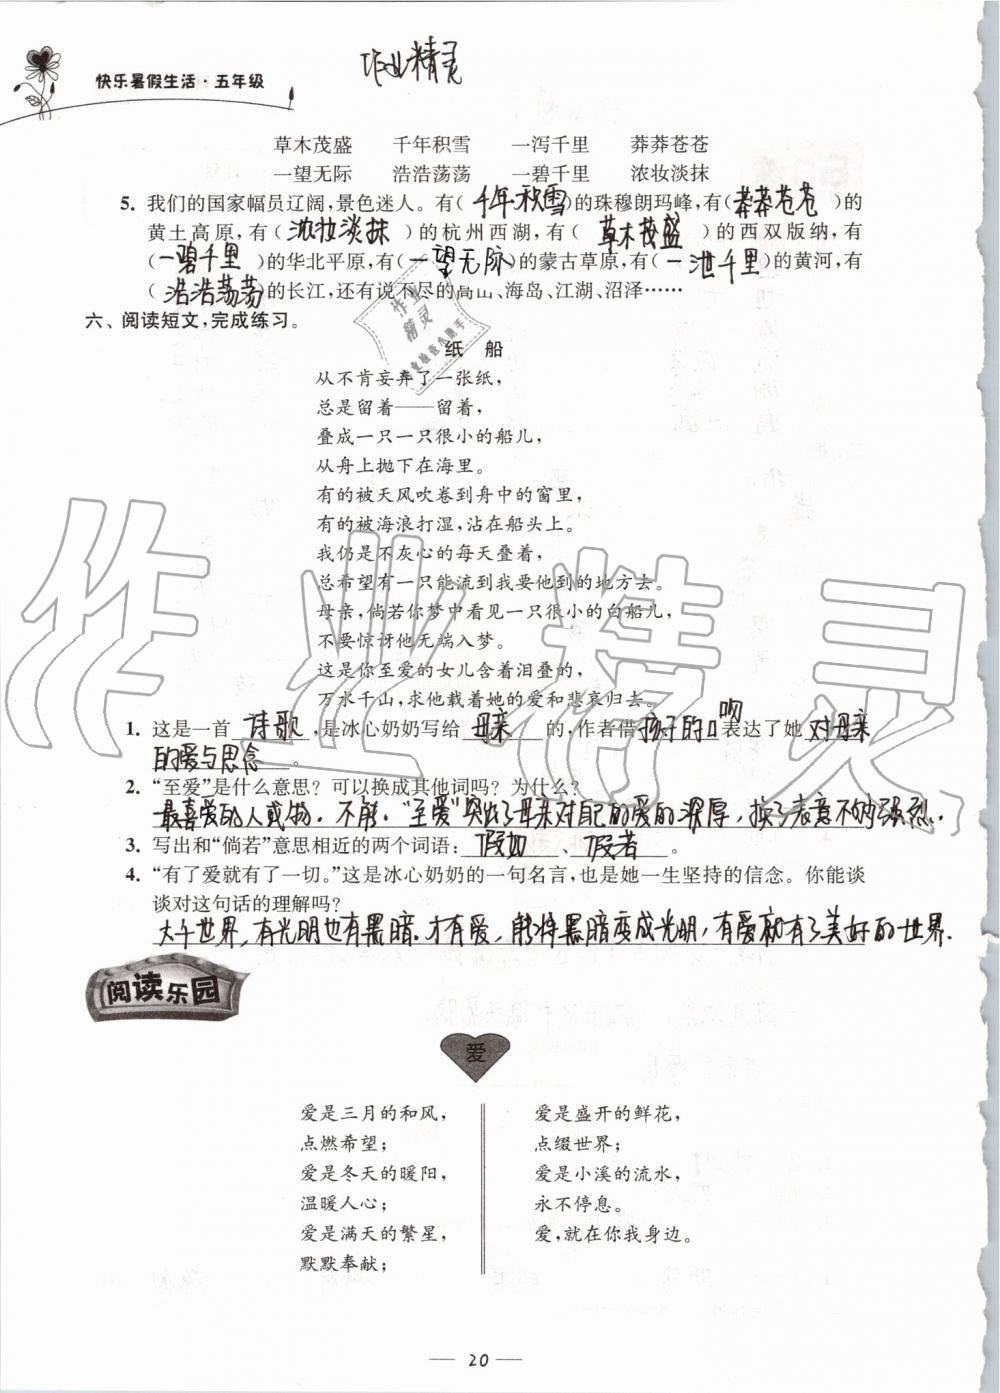 作业精灵
快乐暑假生活·五年级
草木茂盛 千年积雪 一泻千里 莽莽苍苍
一望无际 浩浩荡荡 一碧千里 浓妆淡抹
5. 我们的国家幅员辽阔,景色迷人。有(千年积雪)的珠穆朗玛峰,有(莽莽苍苍)的
黄土高原,有(浓妆淡抹)的杭州西湖,有(草木茂盛)的西双版纳,有
(一碧千里)的华北平原,有(一望无际)的蒙古草原,有(一泄千里)的黄河,有
(浩浩荡荡)的长江,还有说不尽的高山、海岛、江湖、沼泽……
六、阅读短文,完成练习。
纸 船
从不肯妄弃了一张纸,
总是留着——留着,
叠成一只一只很小的船儿,
从舟上抛下在海里。
有的被天风吹卷到舟中的窗里,
有的被海浪打湿,沾在船头上。
我仍是不灰心的每天叠着,
总希望有一只能流到我要他到的地方去。
母亲,倘若你梦中看见一只很小的白船儿,
不要惊讶他无端入梦。
这是你至爱的女儿含着泪叠的,
万水千山,求他载着她的爱和悲哀归去。
1. 这是一首 诗歌 ,是冰心奶奶写给 母亲 的,作者借 孩子的口吻 表达了她 对母亲
的爱与思念 。
2. “至爱”是什么意思?可以换成其他词吗?为什么?
最喜爱的人或物。不能,“至爱”突出了母亲对自己的爱的深厚,换了表意不够强烈.
3. 写出和“倘若”意思相近的两个词语: 假如 、 假若 。
4. “有了爱就有了一切。”这是冰心奶奶的一句名言,也是她一生坚持的信念。你能谈
谈对这句话的理解吗?
大千世界,有光明也有黑暗.才有爱,能将黑暗变成光明,有爱就有了美好的世界.
阅读乐园
爱
爱是三月的和风,
点燃希望;
爱是冬天的暖阳,
温暖人心;
爱是满天的繁星,
默默奉献;
爱是盛开的鲜花,
点缀世界;
爱是小溪的流水,
永不停息。
爱,就在你我身边。
— 20 —
作业精灵
作业精灵